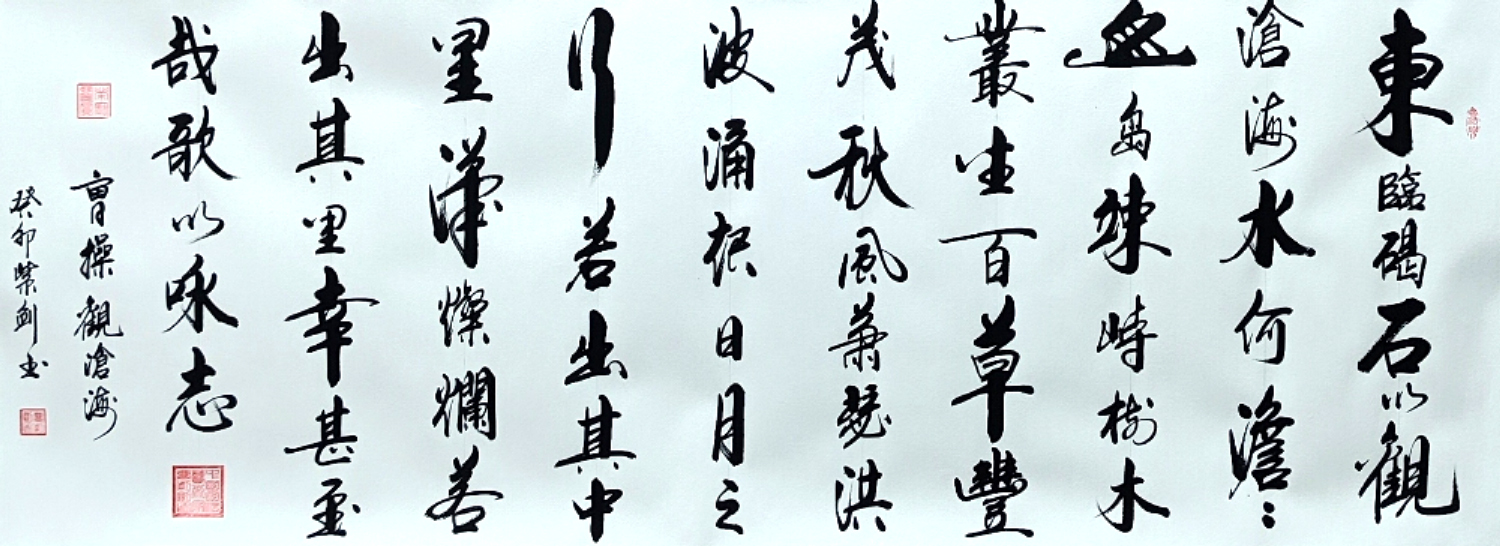 東臨碣石以觀
滄海水何澹〻
山島竦峙樹木
叢生百草豐
茂秋風蕭瑟洪
波涌起日月之
行若出其中
星漢燦爛若
出其里幸甚至
哉歌以咏志
曹操觀滄海
癸卯紫剑书